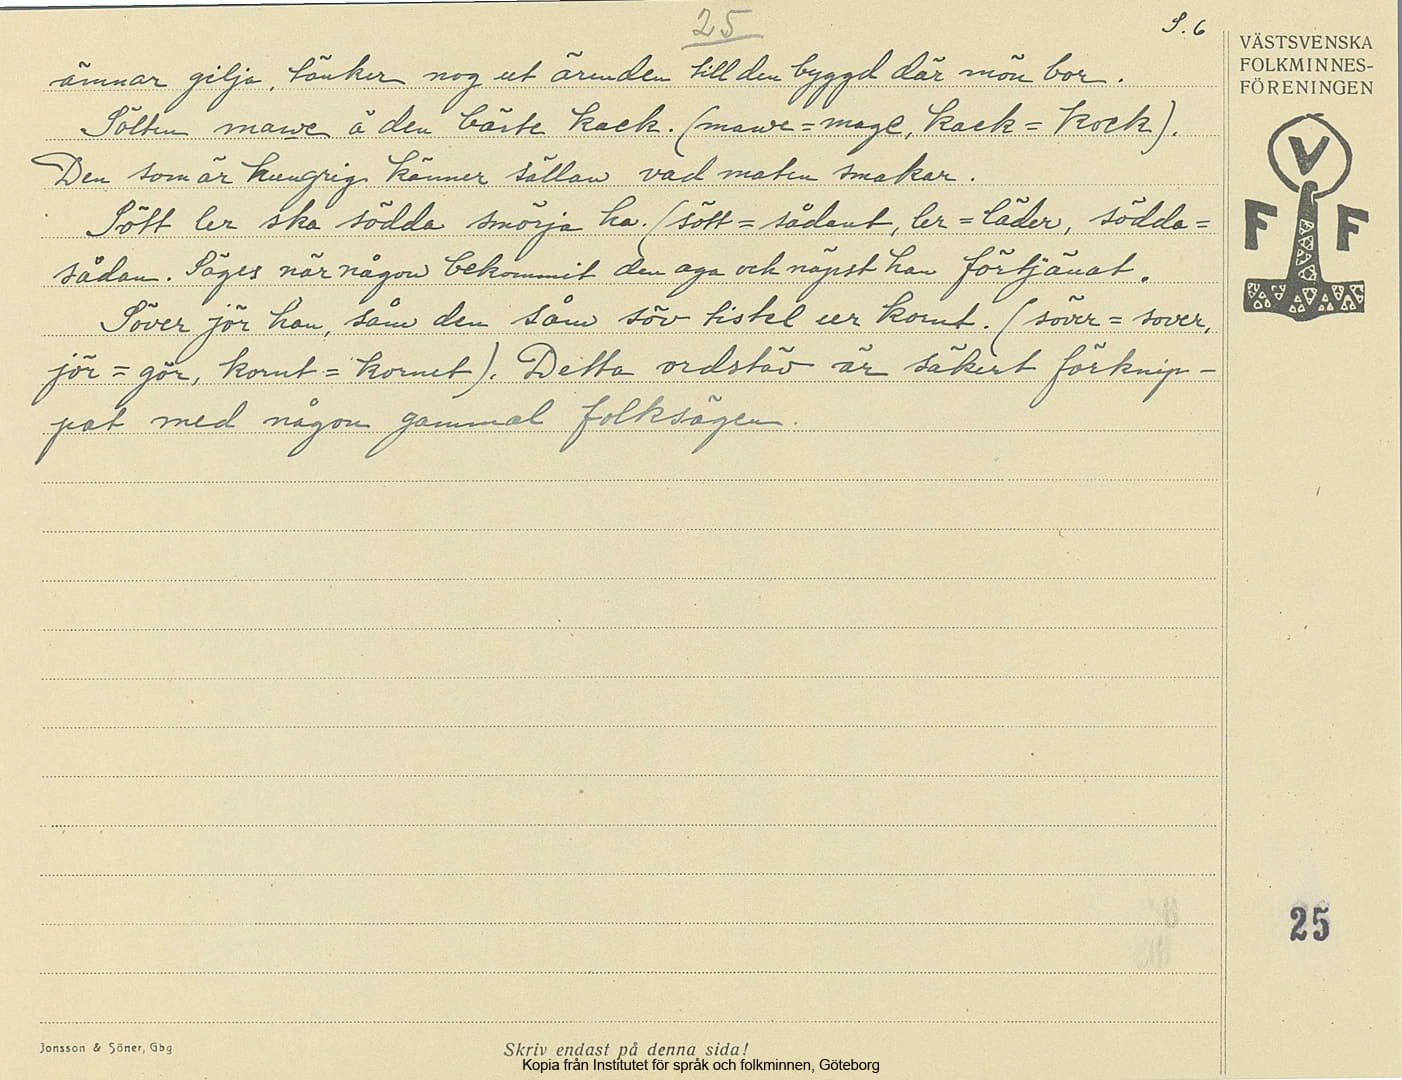 25
S. 6
ämnar gilja, tänker nog ut ärenden till den byggd där mön bor.
Sölten mawe ä den bäste kack. (mawe = mage, kack = kock).
Den som är hungrig känner sällan vad maten smakar.
Sött ler ska södda smörja ha. (sött = sådant, ler = läder, södda =
sådan. Säges när någon bekommit den aga och näpst han förtjänat.
Söver jör han, såm den såm söv tistel ur kornt. (söver = sover,
jör = gör, kornt = kornet). Detta ordstäv är säkert förknip-
pat med någon gammal folksägen.
VÄSTSVENSKA
FOLKMINNES-
FÖRENINGEN
V
F F
25
Jonsson & Söner, Gbg
Skriv endast på denna sida!
Kopia från Institutet för språk och folkminnen, Göteborg